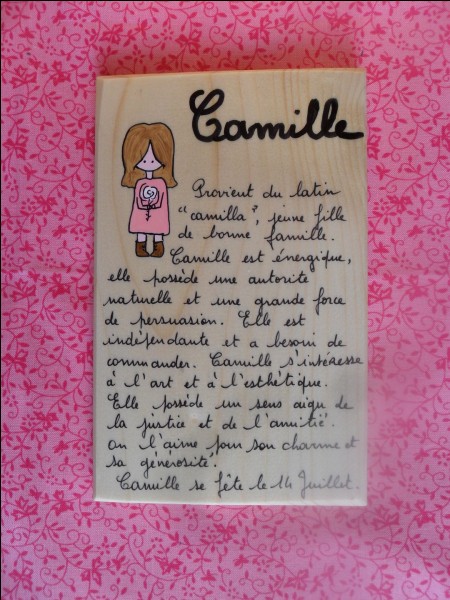 Camille
Provient du latin
"camilla", jeune fille
de bonne famille.
Camille est énergique,
elle possède une autorité
naturelle et une grande force
de persuasion. Elle est
indépendante et a besoin de
commander. Camille s'intéresse
à l'art et à l'esthétique.
Elle possède un sens aigu de
la justice et de l'amitié.
On l'aime pour son charme et
sa générosité.
Camille se fête le 14 Juillet.